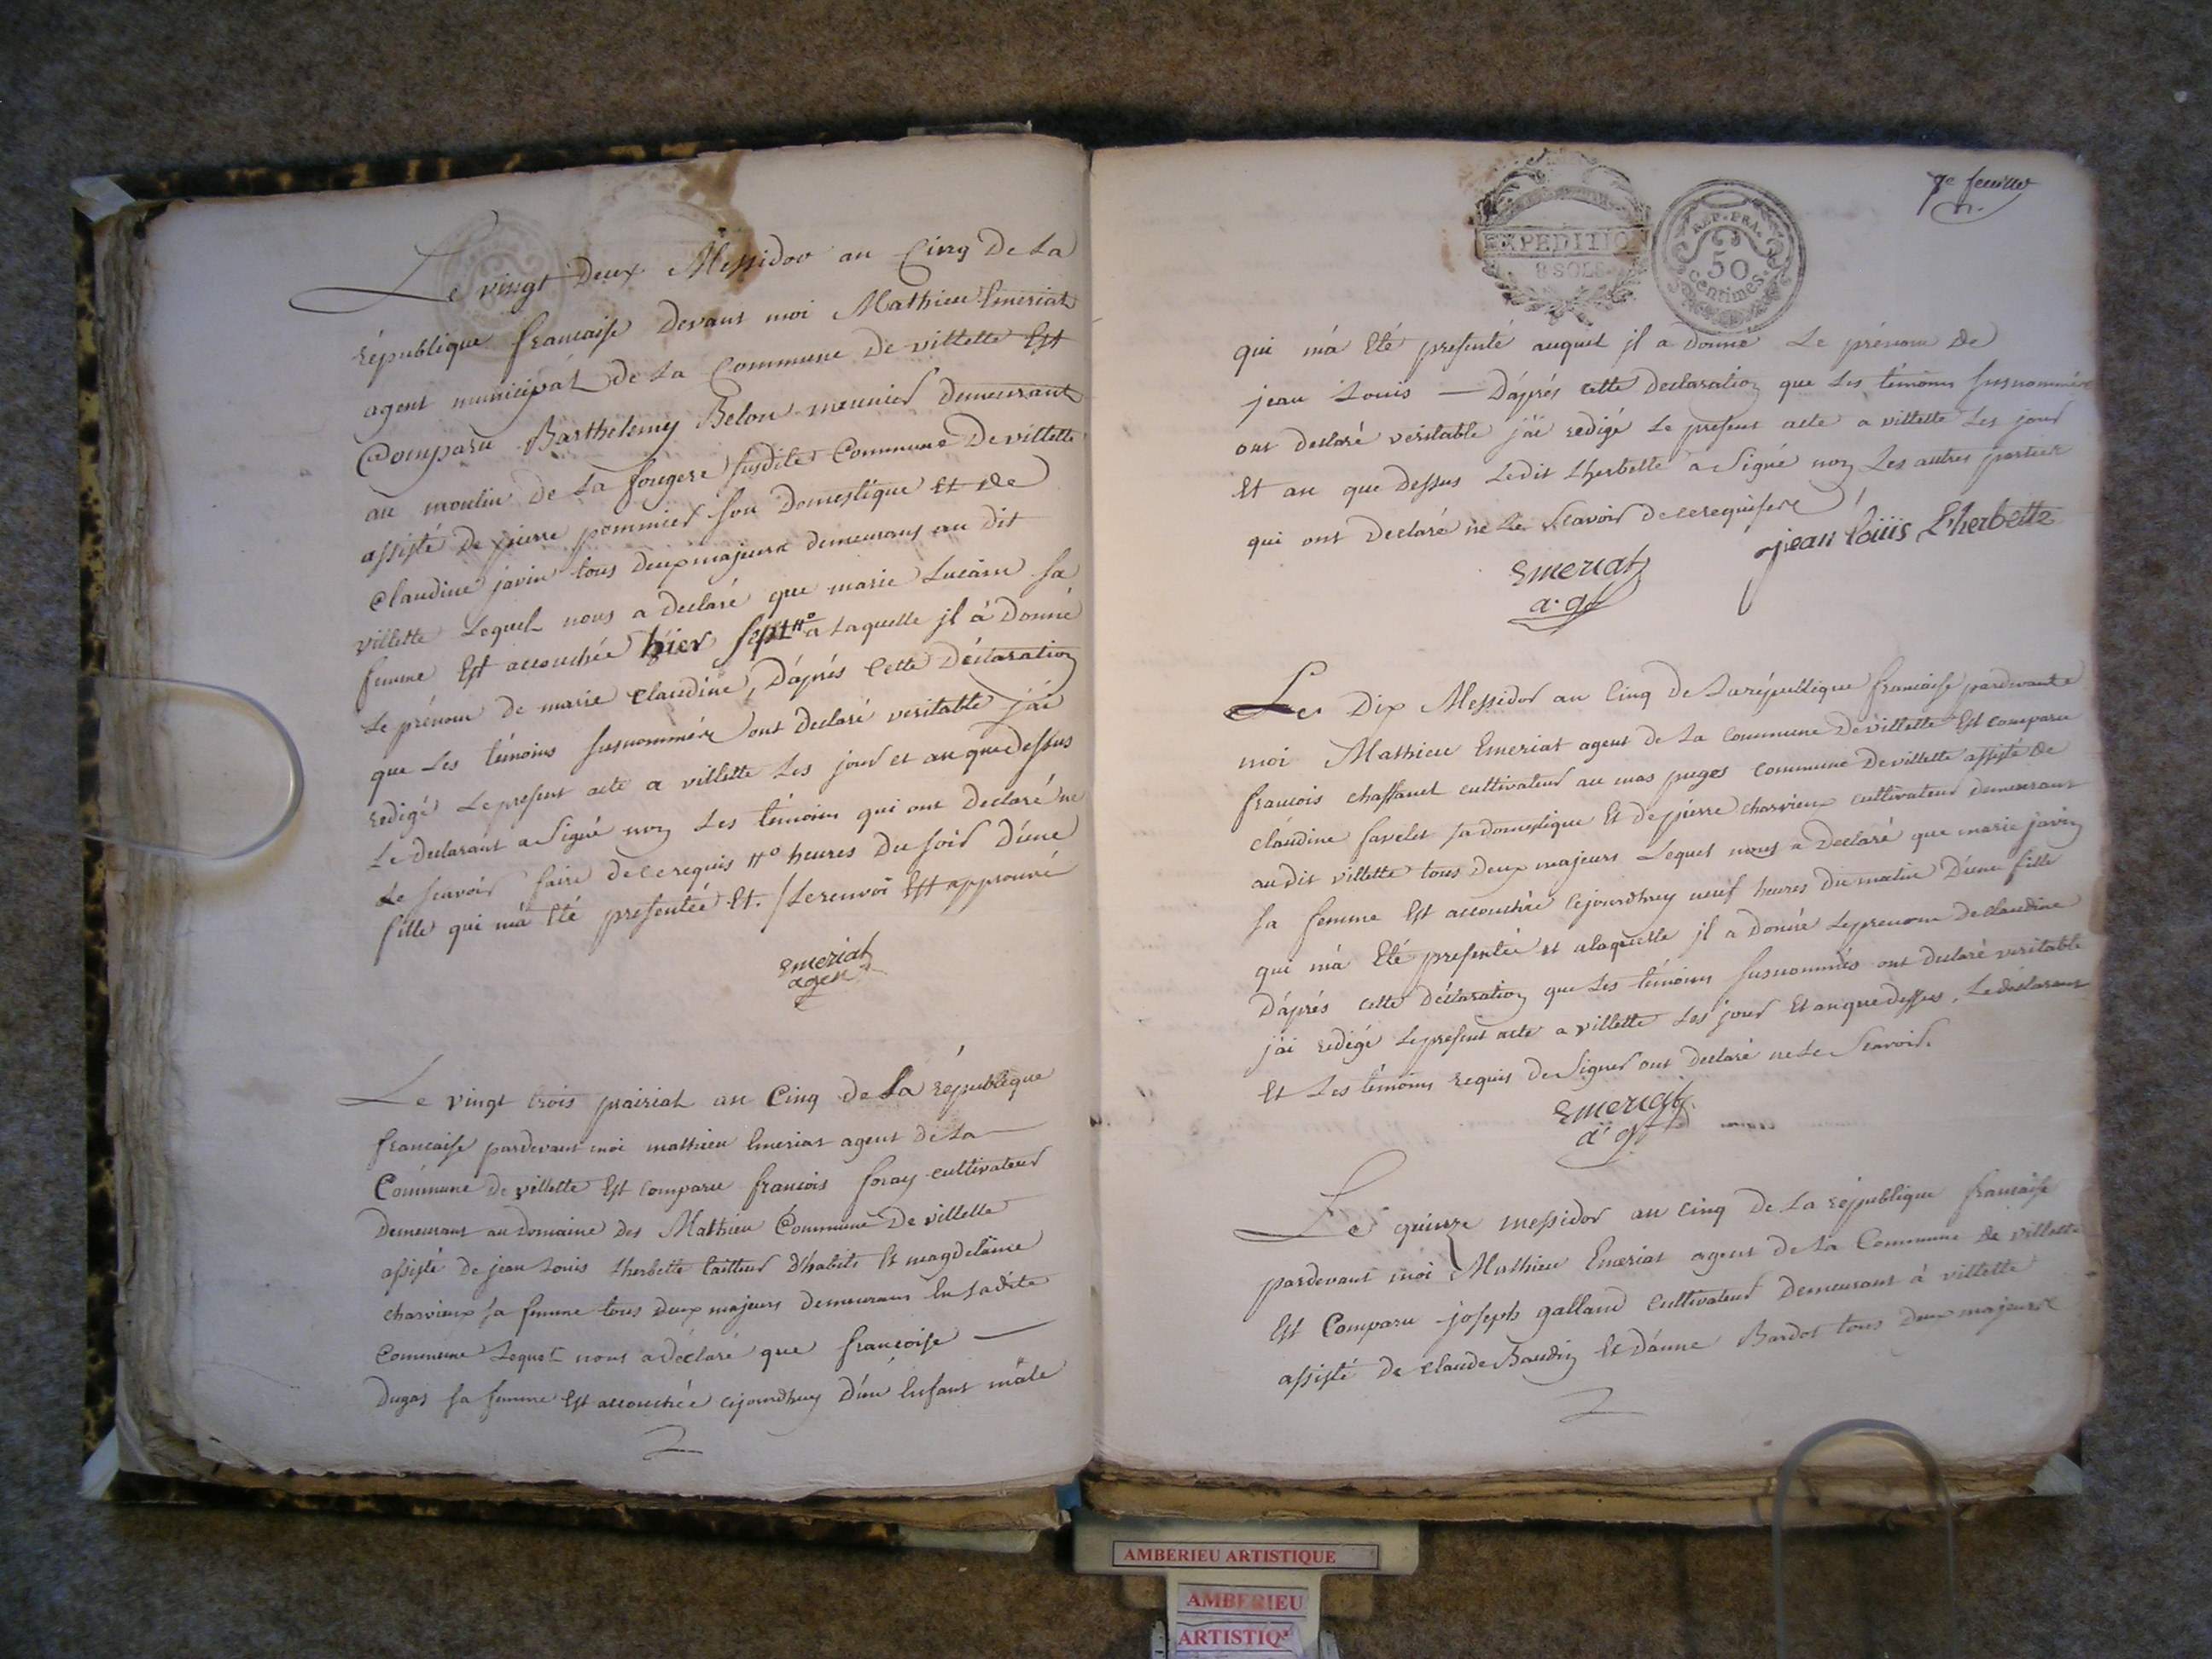 Le vingt Deux Messidor an Cinq De La
république francaise Devant moi Mathieu Emeriat
agent municipal De La Commune De villette Est
Comparu Barthelemy Belon meunier Demeurant
au moulin De La fougere susdite Commune De villette
assisté De pierre pommier son Domestique Et De
Claudine javin tous Deux majeurs demeurans au dit
villette Lequel nous a declaré que marie sa
femme Est accouchée hier sept a Laquelle jl à Donné
Le prénom De marie Claudine, D'aprés Cette Déclaration
que Les témoins susnommés ont declaré veritable j'ai
redigé Le present acte a villette Les jour et an que dessus
Le declarant a Signé non Les témoins qui ont Declaré ne
Le scavoir faire de ce requis heures Du soir D'une
fille qui m'a Eté presentée Et. / Le renvoi Est approuvé
Emeriat
agen
Le vingt trois prairial an Cinq De La république
francaise pardevant moi mathieu Emeriat agent de La
Commune De villette Est comparu francois foray cultivateur
Demeurant au Domaine des Mathieu Commune De villette
assisté De jean Louis Lherbette tailleur D'habits Et magdelaine
charvieux sa femme tous deux majeurs Demeurans En Ladite
Commune Lequel nous a declaré que francoise
Dugas sa femme Est accouchée cejourdhuy D'un Enfant mâle
7e feuillet
EXPEDITION
8 SOLS
REP. FRA.
50
Centimes.
qui m'a Eté presenté auquel jl a Donné Le prénom De
jean Louis — D'aprés cette declaration que Les témoins susnommés
ont declaré veritable j'ai redigé Le present acte a villette Les jour
Et an que dessus Ledit Lherbette a Signé non Les autres
qui ont Declaré ne Le scavoir De ce
Emeriat
a.g.
jean loüis Lherbette
Le Dix Messidor an Cinq De La république francaise pardevant
moi Mathieu Emeriat agent de La Commune De villette Est comparu
francois chaffanel cultivateur au mas puges commune De villette assisté De
claudine favelet sa domestique Et De pierre charvieux cultivateur demeurant
au dit villette tous Deux majeurs Lequel nous a Declaré que marie javin
sa femme Est accouchée cejourdhuy neuf heures Du matin D'une fille
qui m'a Eté presentée et a laquelle jl a Donné Le prenom De claudine
D'aprés cette Déclaration que Les témoins susnommés ont declaré veritable
j'ai redigé Le present acte a villette Les jour Et an que dessus, Le déclarant
Et Les témoins requis De Signer ont Declaré ne Le Scavoir.
Emeriat
a.g.
Le quinze messidor an Cinq De La république francaise
pardevant moi Mathieu Emeriat agent De La Commune De villette
Est Comparu joseph galland cultivateur Demeurant à villette
assisté De claude Baudin Et D'anne Bardot tous deux majeurs
AMBERIEU ARTISTIQUE
AMBERIEU
ARTISTIQ